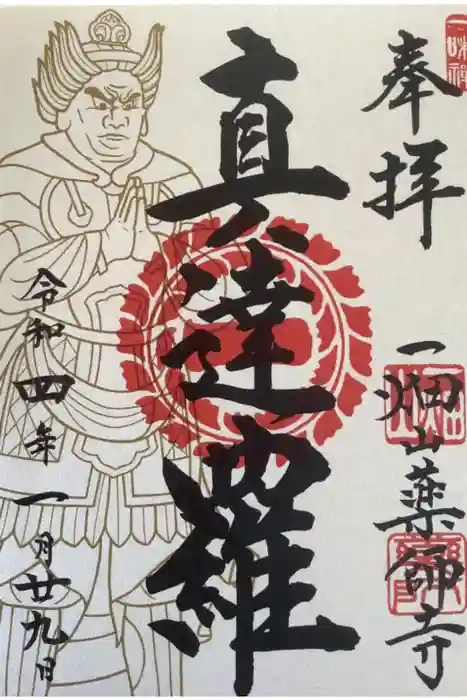 奉拝
一畑山薬師寺
真達羅
令和四年一月廿九日